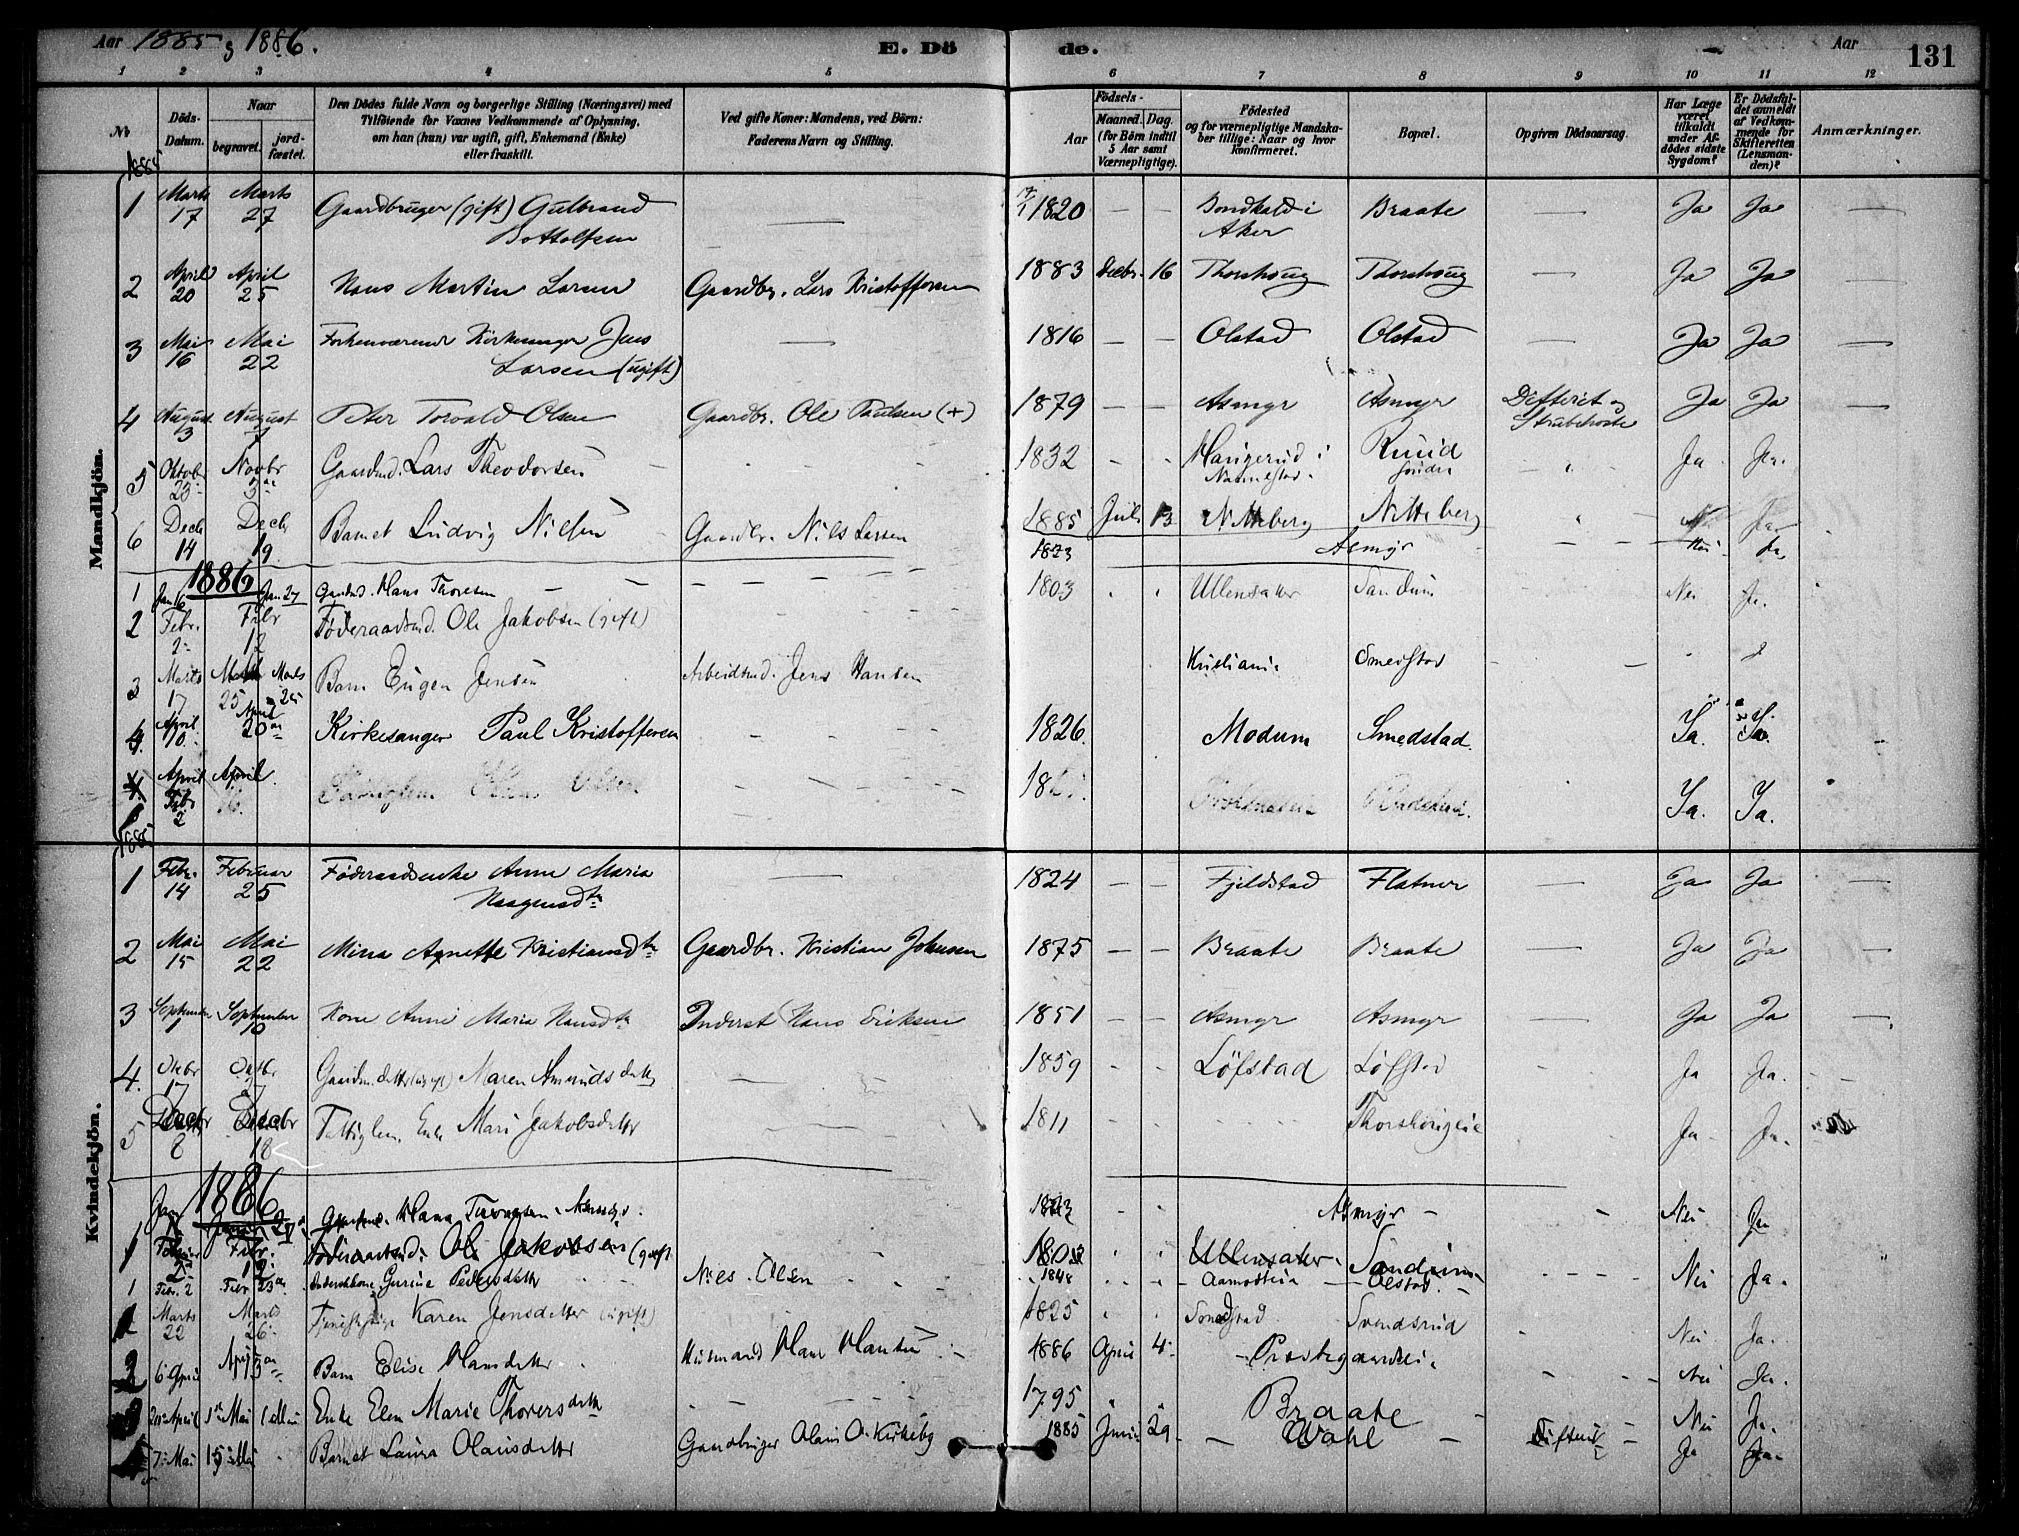 Aar 1885 og 1886.
E. Dö
de.
Aar
131
1 2 3 4 5 6 7 8 9 10 11 12
No
Döds-Datum.
Naar
begravet.
jord-fæstet.
Den Dödes fulde Navn og borgerlige Stilling (Næringsvei) med
Tilföiende for Voxnes Vedkommende af Oplysning,
om han (hun) var ugift, gift, Enkemand (Enke)
eller fraskilt.
Ved gifte Koner: Mandens, ved Börn:
Faderens Navn og Stilling.
Födsels-
Aar
Maaned. Dag.
(for Börn indtil
5 Aar samt
Værnepligtige).
Födested
og for værnepligtige Mandska-
ber tillige: Naar og hvor
konfirmeret.
Bopæl.
Opgiven Dödsaarsag.
Har Læge
været
tilkaldt
under Af-
dödes sidste
Sygdom?
Er Dödsfal-
det anmeldt
af Vedkom-
mende for
Skifteretten
(Lensman-
den)?
Anmærkninger.
Mandkjön.
1885
1 Marts 17 Marts 27 Gaardbruger (gift) Gulbrand Bottolfsen — 1820 — — i Aker Braate — Ja Ja —
2 April 20 April 25 Hans Martin Larsen Gaardbr. Lars Kristoffersen 1883 Decbr. 16 Thorshoug Thorshoug — Ja Ja —
3 Mai 16 Mai 22 Forhenværende Kirkesanger Jens Larsen (ugift) — 1816 — — Olstad Olstad — Ja Ja —
4 August 3 August 7 Peter Torvald Olsen Gaardbr. Ole Paulsen (+) 1879 — — Asmyr Asmyr Difterit og Strubehoste Ja Ja —
5 Oktobr 23 Novbr 3 Gaardmd. Lars Theodorsen 1832 - - Haugerud i Nannestad. Ruud søndre Ja Ja.
6 Decb 14 Decb 19. Barnet Ludvig Nilsen Gaardbr. Nils Larsen 1885 Juli 13 Nitteberg Nitteberg Ja
1873 Asmyr Nei Ja
1886
1 Jan 16 Jan 27 Gaardmd. Hans Thoresen
2 Febr. 2 Febr 12 Føderaadsmd. Ole Jakobsen (gift) 1803 Ullensaker Sandum Nei Ja.
3 Marts 17 Marts 25 Marts 25 Barn Eugen Jensen Arbeidsmd. Jens Hansen Kristiania Smedstad
4 April 10. April 20 Kirkesanger Paul Kristoffersen 1826. Modum Smedstad. Ja. Ja.
April April Ja. Ja.
Febr 2
Kvindekjön.
1885
1 Febr. 14 Februar 25 Føderaadsenke Anne Maria Haagensdtr — 1824 — — Fjeldstad Flatner — Ja Ja —
2 Mai 15 Mai 22 Mina Agnette Kristiansdtr Gaardbr. Kristian Johnsen 1875 — — Braate Braate — Ja Ja —
3 September 1 September 10 Kone Anne Maria Hansdtr Inderst Hans Eriksen 1851 — — Asmyr Asmyr — Ja Ja —
4. Oktbr 17 Oktbr 27 Gaardm.datter (ugift) Maren Amundsdatter — 1859 - - Løfstad Løfstad Ja Ja.
5 Decbr 8 Decbr 18 Fattiglem. Enke Mari Jakobsdatter 1811 Thorshougeie Ja Ja.
1886
Jan Hans Asmyr Nei Ja
1 Febr. 12 Føderaadsmd. Ole Jakobsen (gift 1803 Ullensaker Sandum
1 Febr. 2 Febr 23 Inderstkone Gurine Pedersdatter Niels Olsen 1848 Aamodteie Olstad. Nei Ja.
Marts 22 Marts 26 Karen Jensdatter (ugift) 1825 Smedstad Svendsrud Nei Ja.
6 April April 13 Barn Elise Hansdatter Husmand Hans Hansen 1886 April 4 Præstegaardseie Nei Ja.
20 April 1 Mai Enke Elen Marie Thoresdatter 1795 Braate Nei Ja.
7 Mai 15 Mai Barnet Laura Olausdatter Gaardbruger Olaus O. Kirkeby 1885 Juni 29 Wahl Difterit Ja Ja.